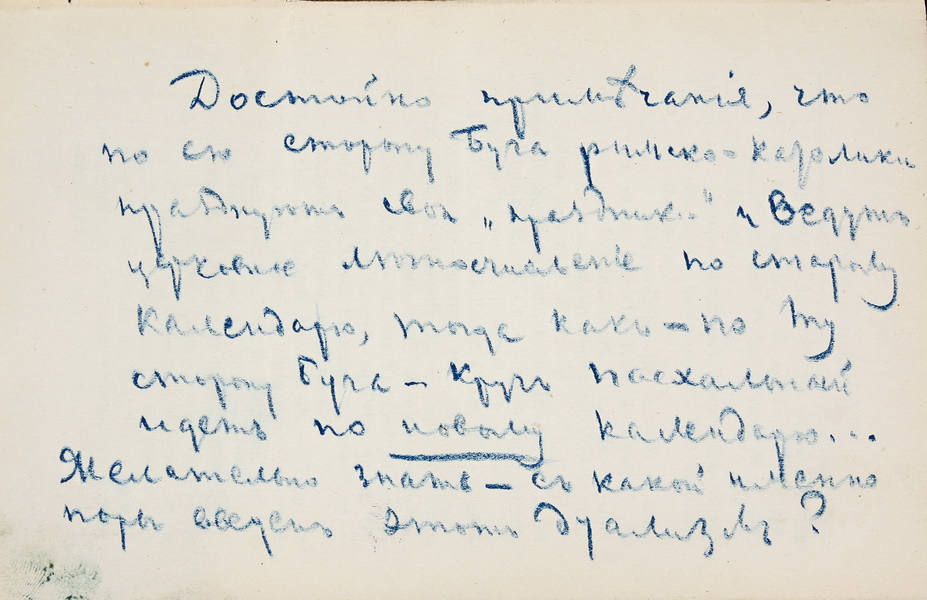 Достойно примѣчанія, что
по сю сторону Буга римско-католики
празднуютъ свои „праздники“ и ведутъ
церковное лѣтосчисленіе по старому
календарю, тогда какъ – по ту
сторону Буга – кругъ пасхальный
идетъ по новому календарю...
Желательно знать – съ какой именно
поры введенъ этотъ дуализмъ?